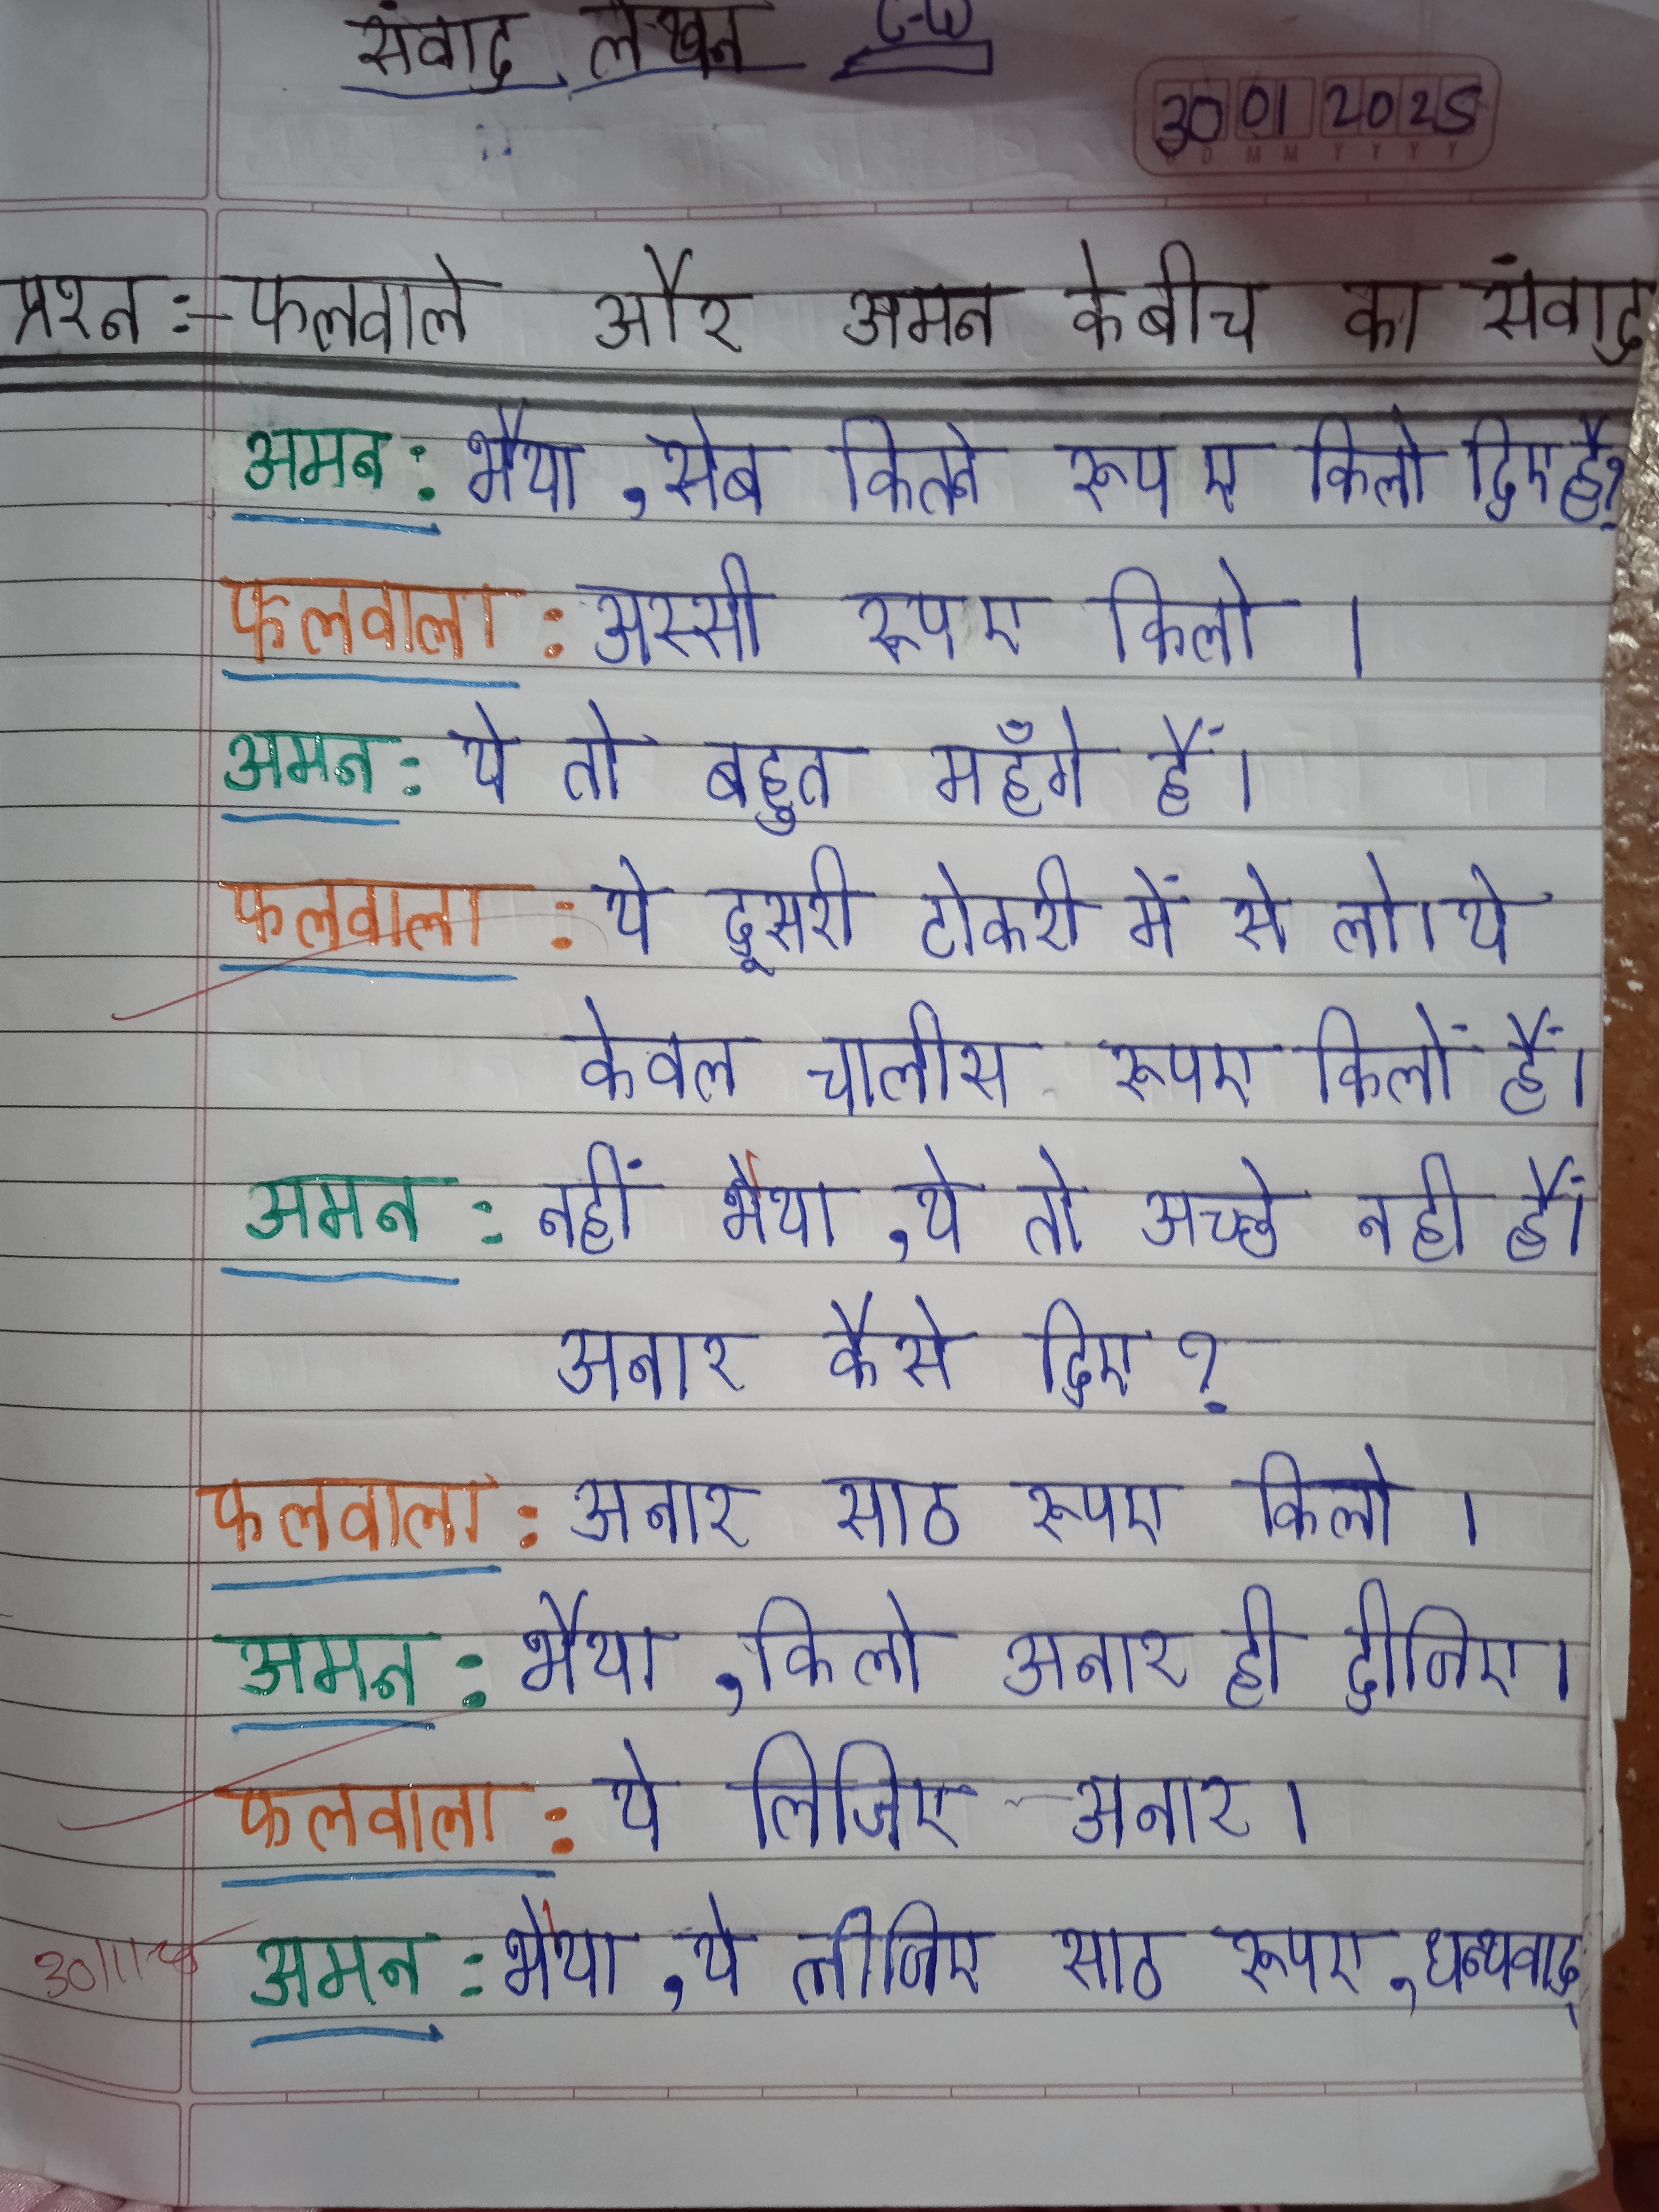 संवाद लेखन C-W
30 01 2025
D M M Y Y Y Y
प्रश्न :- फलवाले और अमन के बीच का संवाद
अमन : भैया , सेब कितने रूपए किलो दिए है?
फलवाला : अस्सी रूपए किलो ।
अमन : ये तो बहुत महँगे हैं।
फलवाला : ये दूसरी टोकरी में से लो। ये
केवल चालीस रूपए किलों हैं।
अमन : नहीं भैया , ये तो अच्छे नही हैं।
अनार कैसे दिए ?
फलवाला : अनार साठ रूपए किलो ।
अमन : भैया , किलो अनार ही दीजिए।
फलवाला : ये लिजिए अनार ।
अमन : भैया , ये लीजिए साठ रूपए , धन्यवाद्